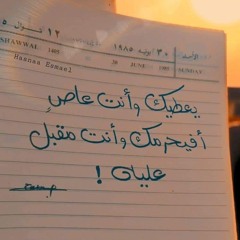 ١٢ شوال
١٩٨٥ يونيه ٣٠ الأحد
SHAWWAL 1405 30 JUNE 1985 SUNDAY
Hannan Esmael
يعطيك وأنت عاصٍ
أفيحرمك وأنت مقبل
عليه !